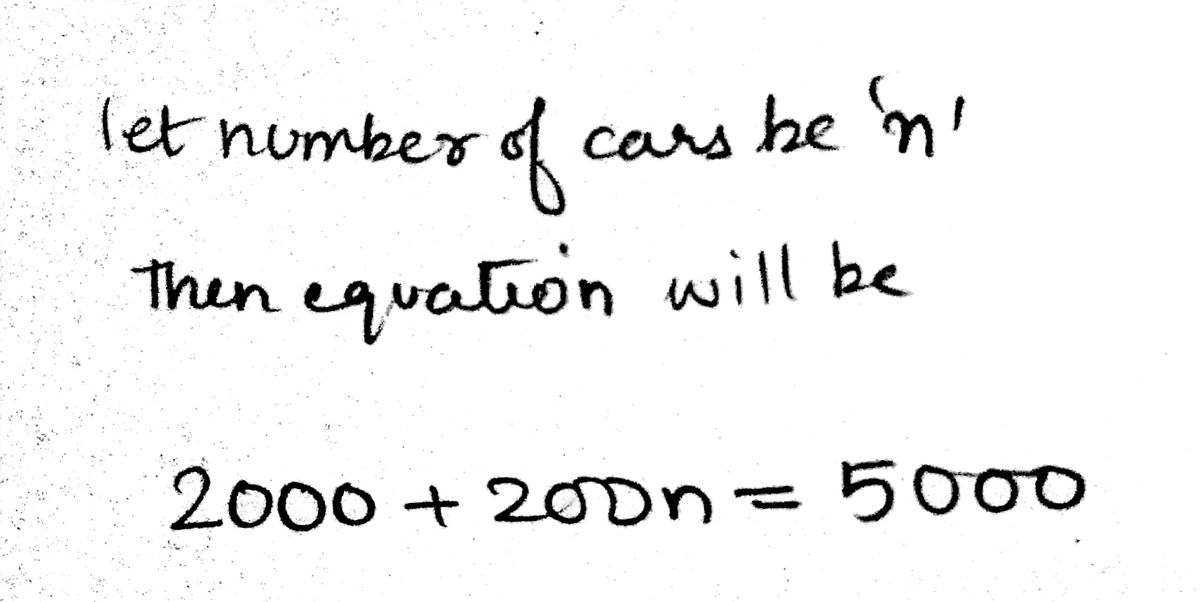 let number of cars be 'n'
Then equation will be
2000 + 200n = 5000